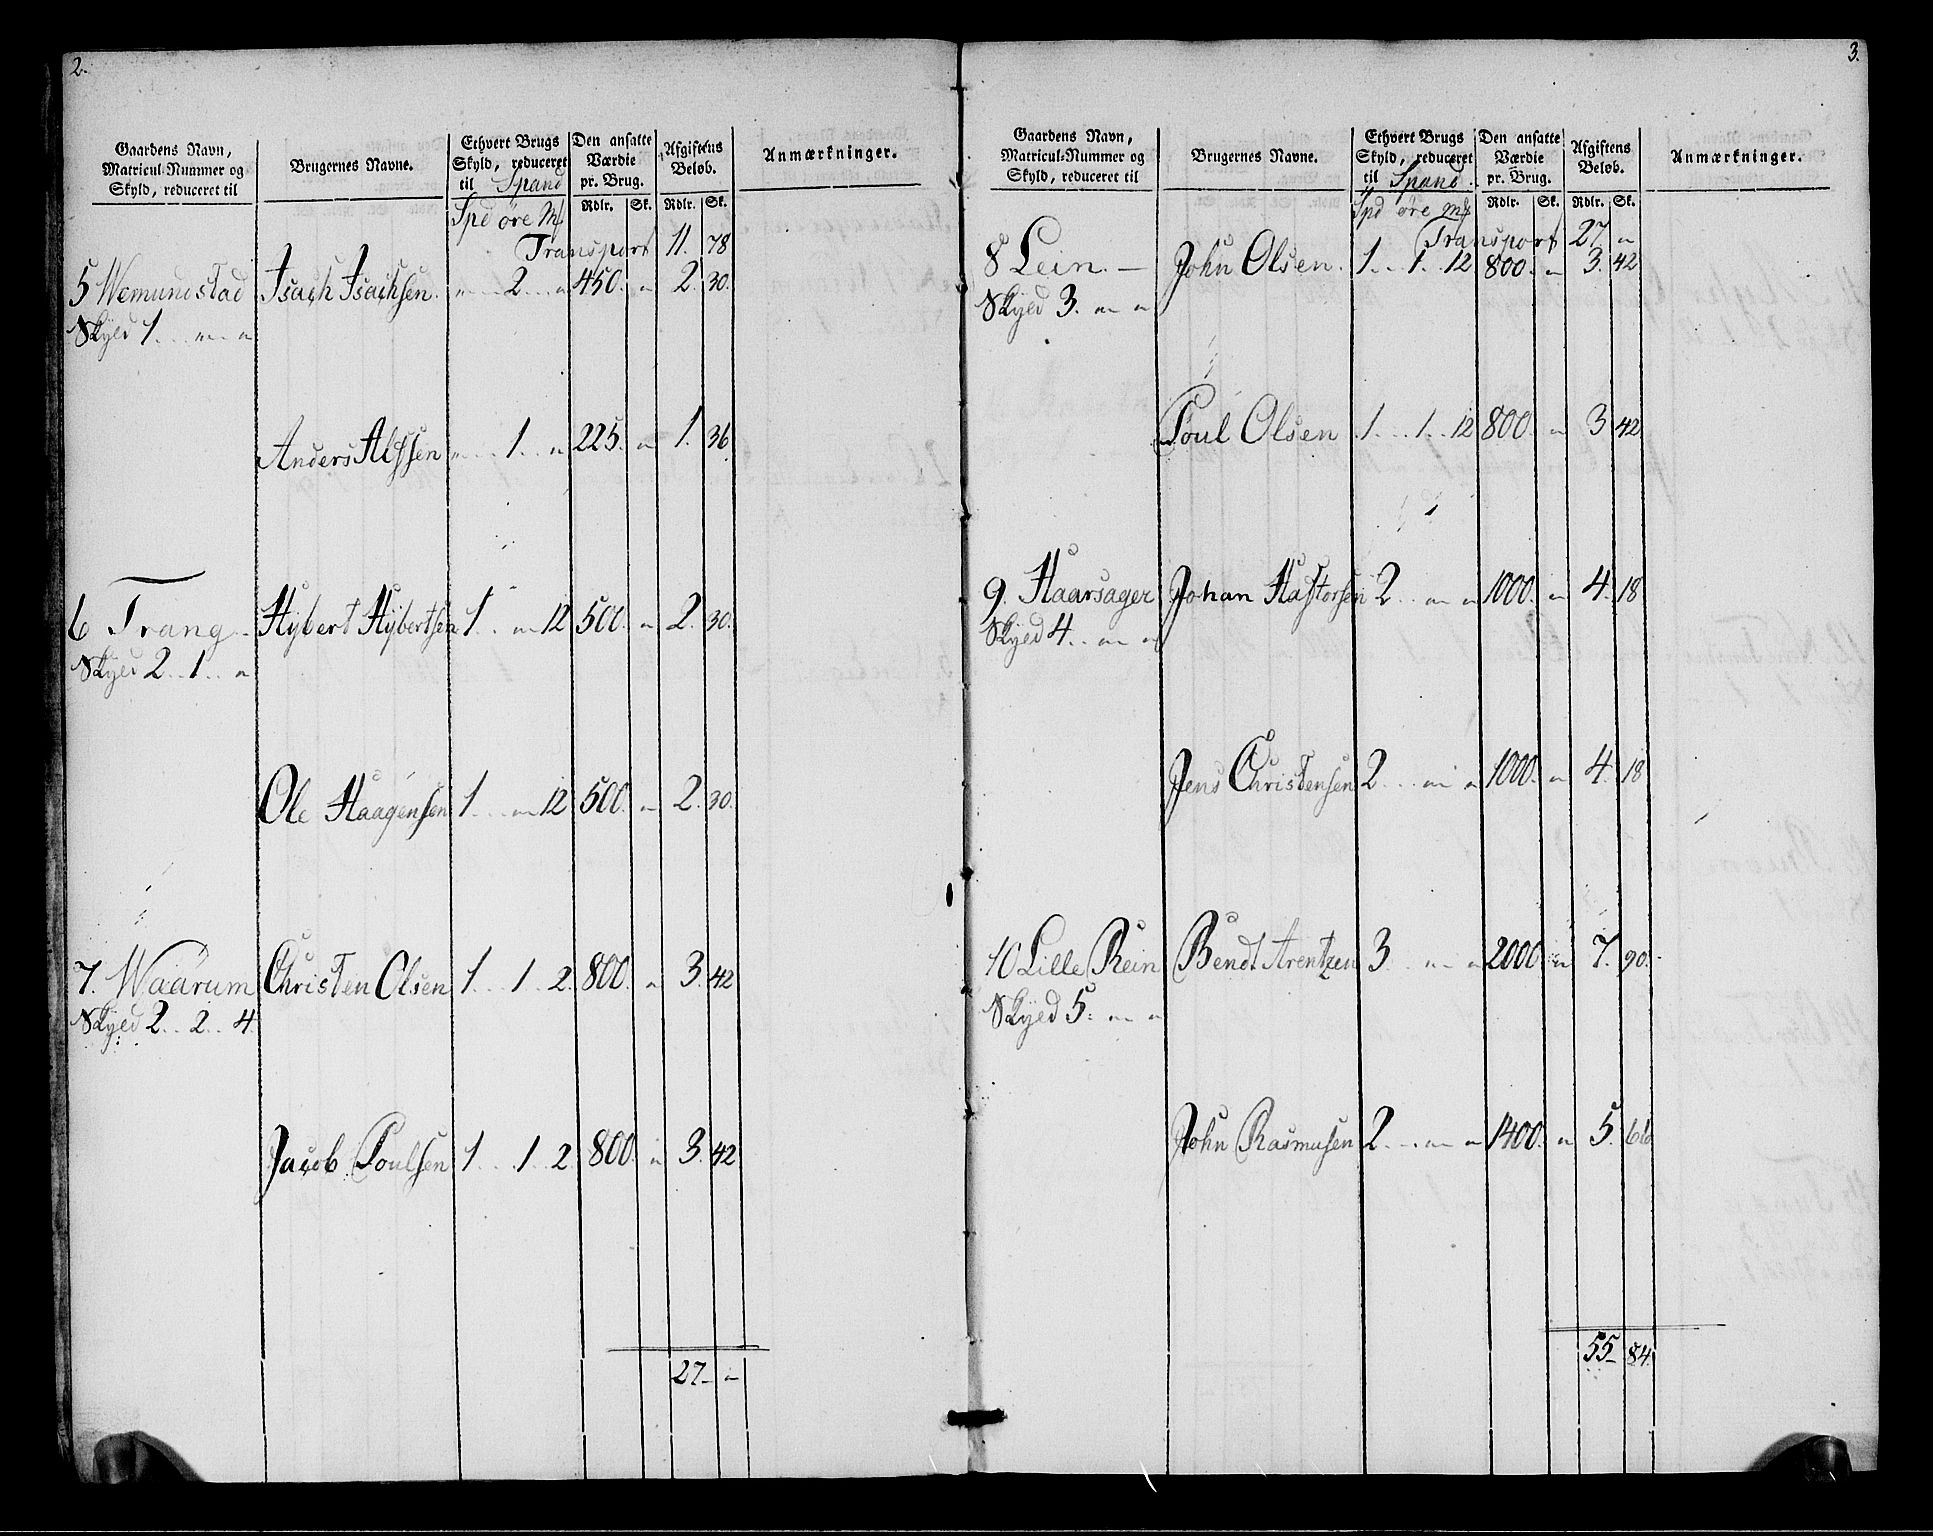 2.
Gaardens Navn, Matricul-Nummer og Skyld, reduceret til
Brugernes Navne.
Ethvert Brugs Skyld, reduceret til Spand
Den ansatte Værdie pr. Brug.
Afgiftens Beløb.
Anmærkninger.
Rdlr. Sk. Rdlr. Sk.
Spd öre Mk
Transport 11. 78
5 Wemundstad Isach Isachsen. " 2 " 450. " 2. 30.
Skyld 1 . . " . . "
Anders Alfssen " 1 . . " 225. " 1. 36.
6 Trang Hybert Hÿbertsen 1 . . " 12 500. " 2. 30.
Skyld 2 . . 1 . . "
Ole Haagensen 1 . . . " 12 500. " 2. 30.
7. Waarum Christen Olsen 1 . . 1 . . 2. 800. " 3. 42
Skyld 2 . . 2 . . 4.
Jacob Poulsen 1 . . . 1 . . 2. 800. " 3. 42
27 "
3.
Gaardens Navn, Matricul-Nummer og Skyld, reduceret til
Brugernes Navne.
Ethvert Brugs Skyld, reduceret til Spand
Den ansatte Værdie pr. Brug.
Afgiftens Beløb.
Anmærkninger.
Rdlr. Sk. Rdlr. Sk.
Spd öre Mk
Transport 27 "
8 Lein. — John Olsen. 1 . . 1 . . 12 800. " 3. 42
Skyld 3. " "
Poul Olsen 1 . . . 1 . . 12 800. " 3 42
9. Haarsager Johan Hastorsen 2 . . " " 1000. " 4. 18
Skyld 4 . . " "
Jens Christensen 2 . . " " 1000. " 4. 18
10 Lille Rein Bendt Arentzen 3 . . " " 2000 " 7. 90.
Skyld 5. " "
John Rasmusen 2 . . . " " 1400. " 5. 66
55 84.